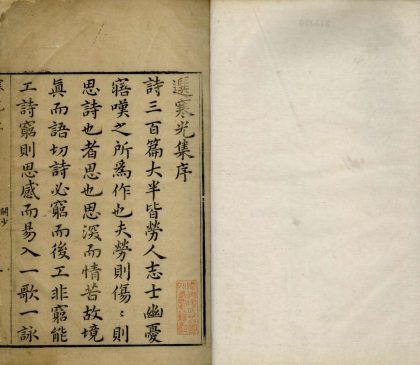 選寒光集序
詩三百篇大半皆勞人志士幽憂
寤嘆之所爲作也夫勞則傷〻則
思詩也者思也思深而情苦故境
眞而語切詩必窮而後工非窮能
工詩窮則思感而易入一歌一詠